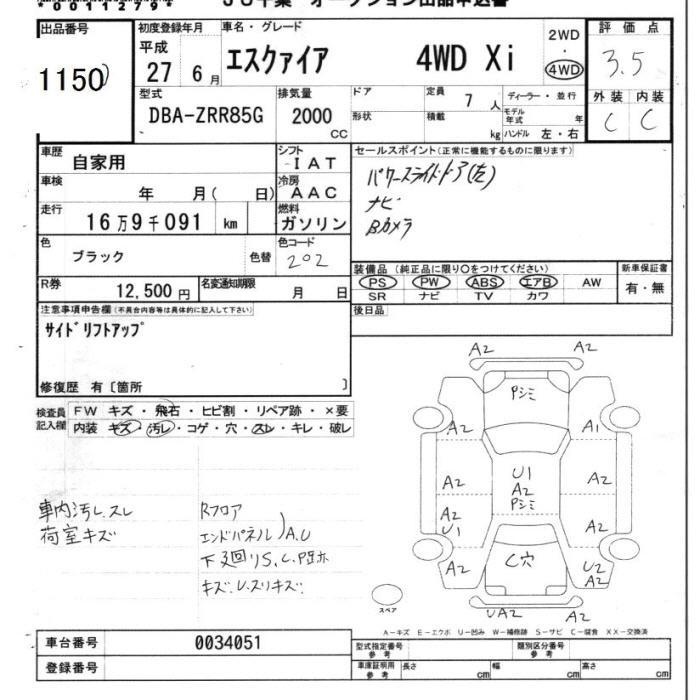 00112794
出品番号
1150
初度登録年月
平成
27年 6月
車名・グレード
エスクァイア 4WD Xi
2WD
・
4WD
評価点
3.5
外装 内装
C C
型式
DBA-ZRR85G
排気量
2000
CC
ドア
形状
定員
7人
積載
kg
ディーラー・並行
モデル年式 年
ハンドル 左・右
車歴
自家用
シフト
IAT
車検
年 月( 日)
冷房
AAC
走行
16万9千091 km
燃料
ガソリン
色
ブラック
色替
色コード
202
R券
12,500円
名変通知期限
月 日
セールスポイント(正常に機能するものに限ります)
パワースライドドア(左)
ナビ
Bカメラ
装備品(純正品に限り○をつけてください)
新車保証書
PS PW ABS エアB AW
有・無
SR ナビ TV カワ
後日品
注意事項申告欄(不具合内容等は具体的に記入して下さい)
サイドリフトアップ
修復歴 有〔箇所 〕
検査員
記入欄
FW キズ・飛石・ヒビ割・リペア跡・×要
内装 キズ・汚レ・コゲ・穴・スレ・キレ・破レ
車内汚レ、スレ
荷室キズ
Rフロア
エンドパネル)A.U
下廻りS、C、
キズ、U、スリキズ
A2 A2
Pシミ
A2 A1
U1
A2
Pシミ
A2 A2
A2
U1
A2
C穴
A2
U2
A2
UA2 A2
スペア
A-キズ E-エクボ U-凹み W-補修跡 S-サビ C-腐食 XX-交換済
車台番号
0034051
登録番号
型式指定番号
参考
類別区分番号
参考
車庫証明用
参考
長さ cm
幅 cm
高さ cm